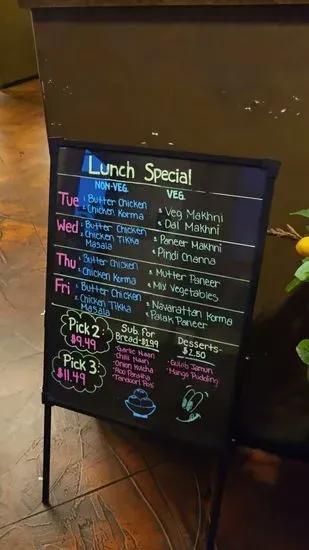 Lunch Special
NON-VEG. VEG.
Tue 1. Butter Chicken 3. Veg Makhni
2. Chicken Korma 4. Dal Makhni
Wed 1. Butter Chicken 3. Paneer Makhni
2. Chicken Tikka Masala 4. Pindi Channa
Thu 1. Butter Chicken 3. Mutter Paneer
2. Chicken Korma 4. Mix Vegetables
Fri 1. Butter Chicken 3. Navarattan Korma
2. Chicken Tikka Masala 4. Palak Paneer
Pick 2:
$9.49
Pick 3:
$11.49
Sub. For
Bread-$1.99
- Garlic Naan
- Chilli Naan
- Onion Kulcha
- Aloo Paratha
- Tandoori Roti
Desserts-
$2.50
- Gulab Jamun
- Mango Pudding